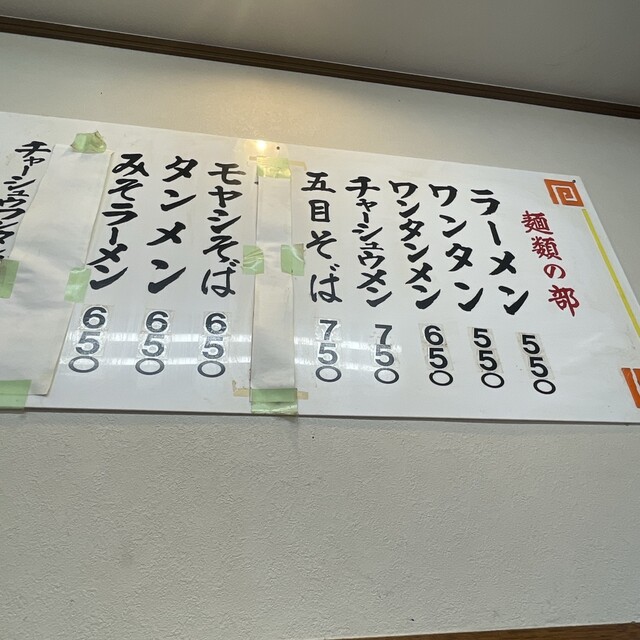 麺類の部
ラーメン 550
ワンタン 550
ワンタンメン 650
チャーシュウメン 750
五目そば 750
モヤシそば 650
タンメン 650
みそラーメン 650
チャーシュウワンタン